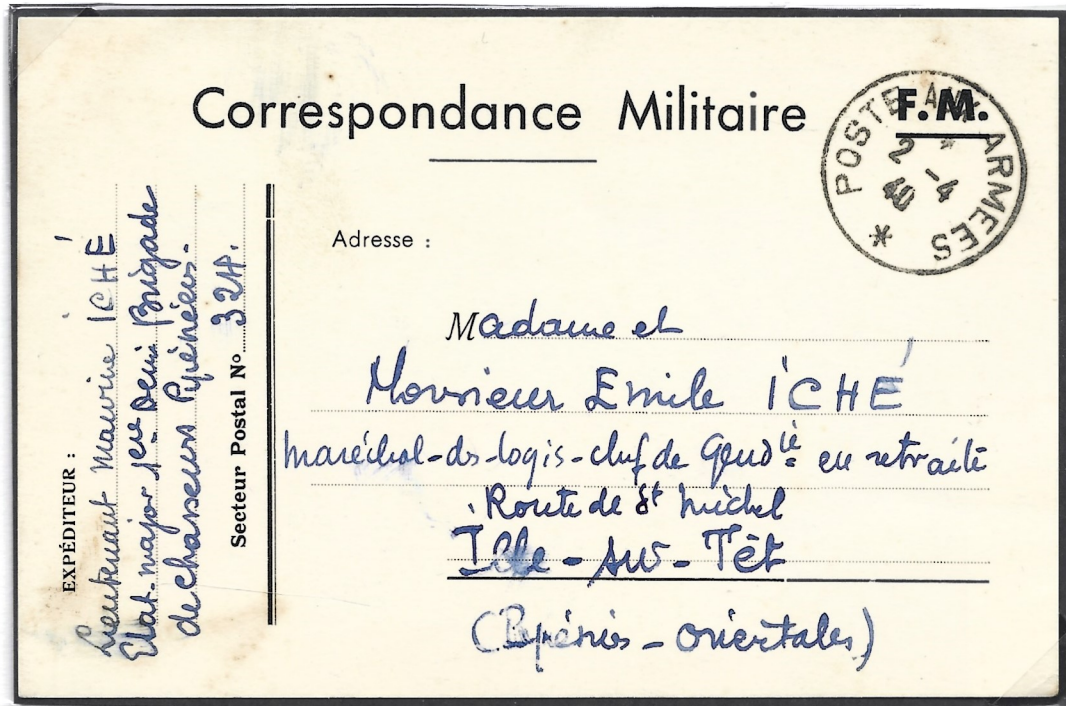 Correspondance Militaire
F.M.
POSTE AUX ARMEES
2 - 4
40
EXPÉDITEUR :
Lieutenant Maurice ICHÉ
Etat-major 1ère Demi Brigade
de chasseurs Pyrénéens -
Secteur Postal N° 324.
Adresse :
Madame et
Monsieur Emile ICHÉ
maréchal-ds-logis-chef de Gendie en retraite
Route de St Michel
Ille-sur-Têt
(Pyrénées-orientales)